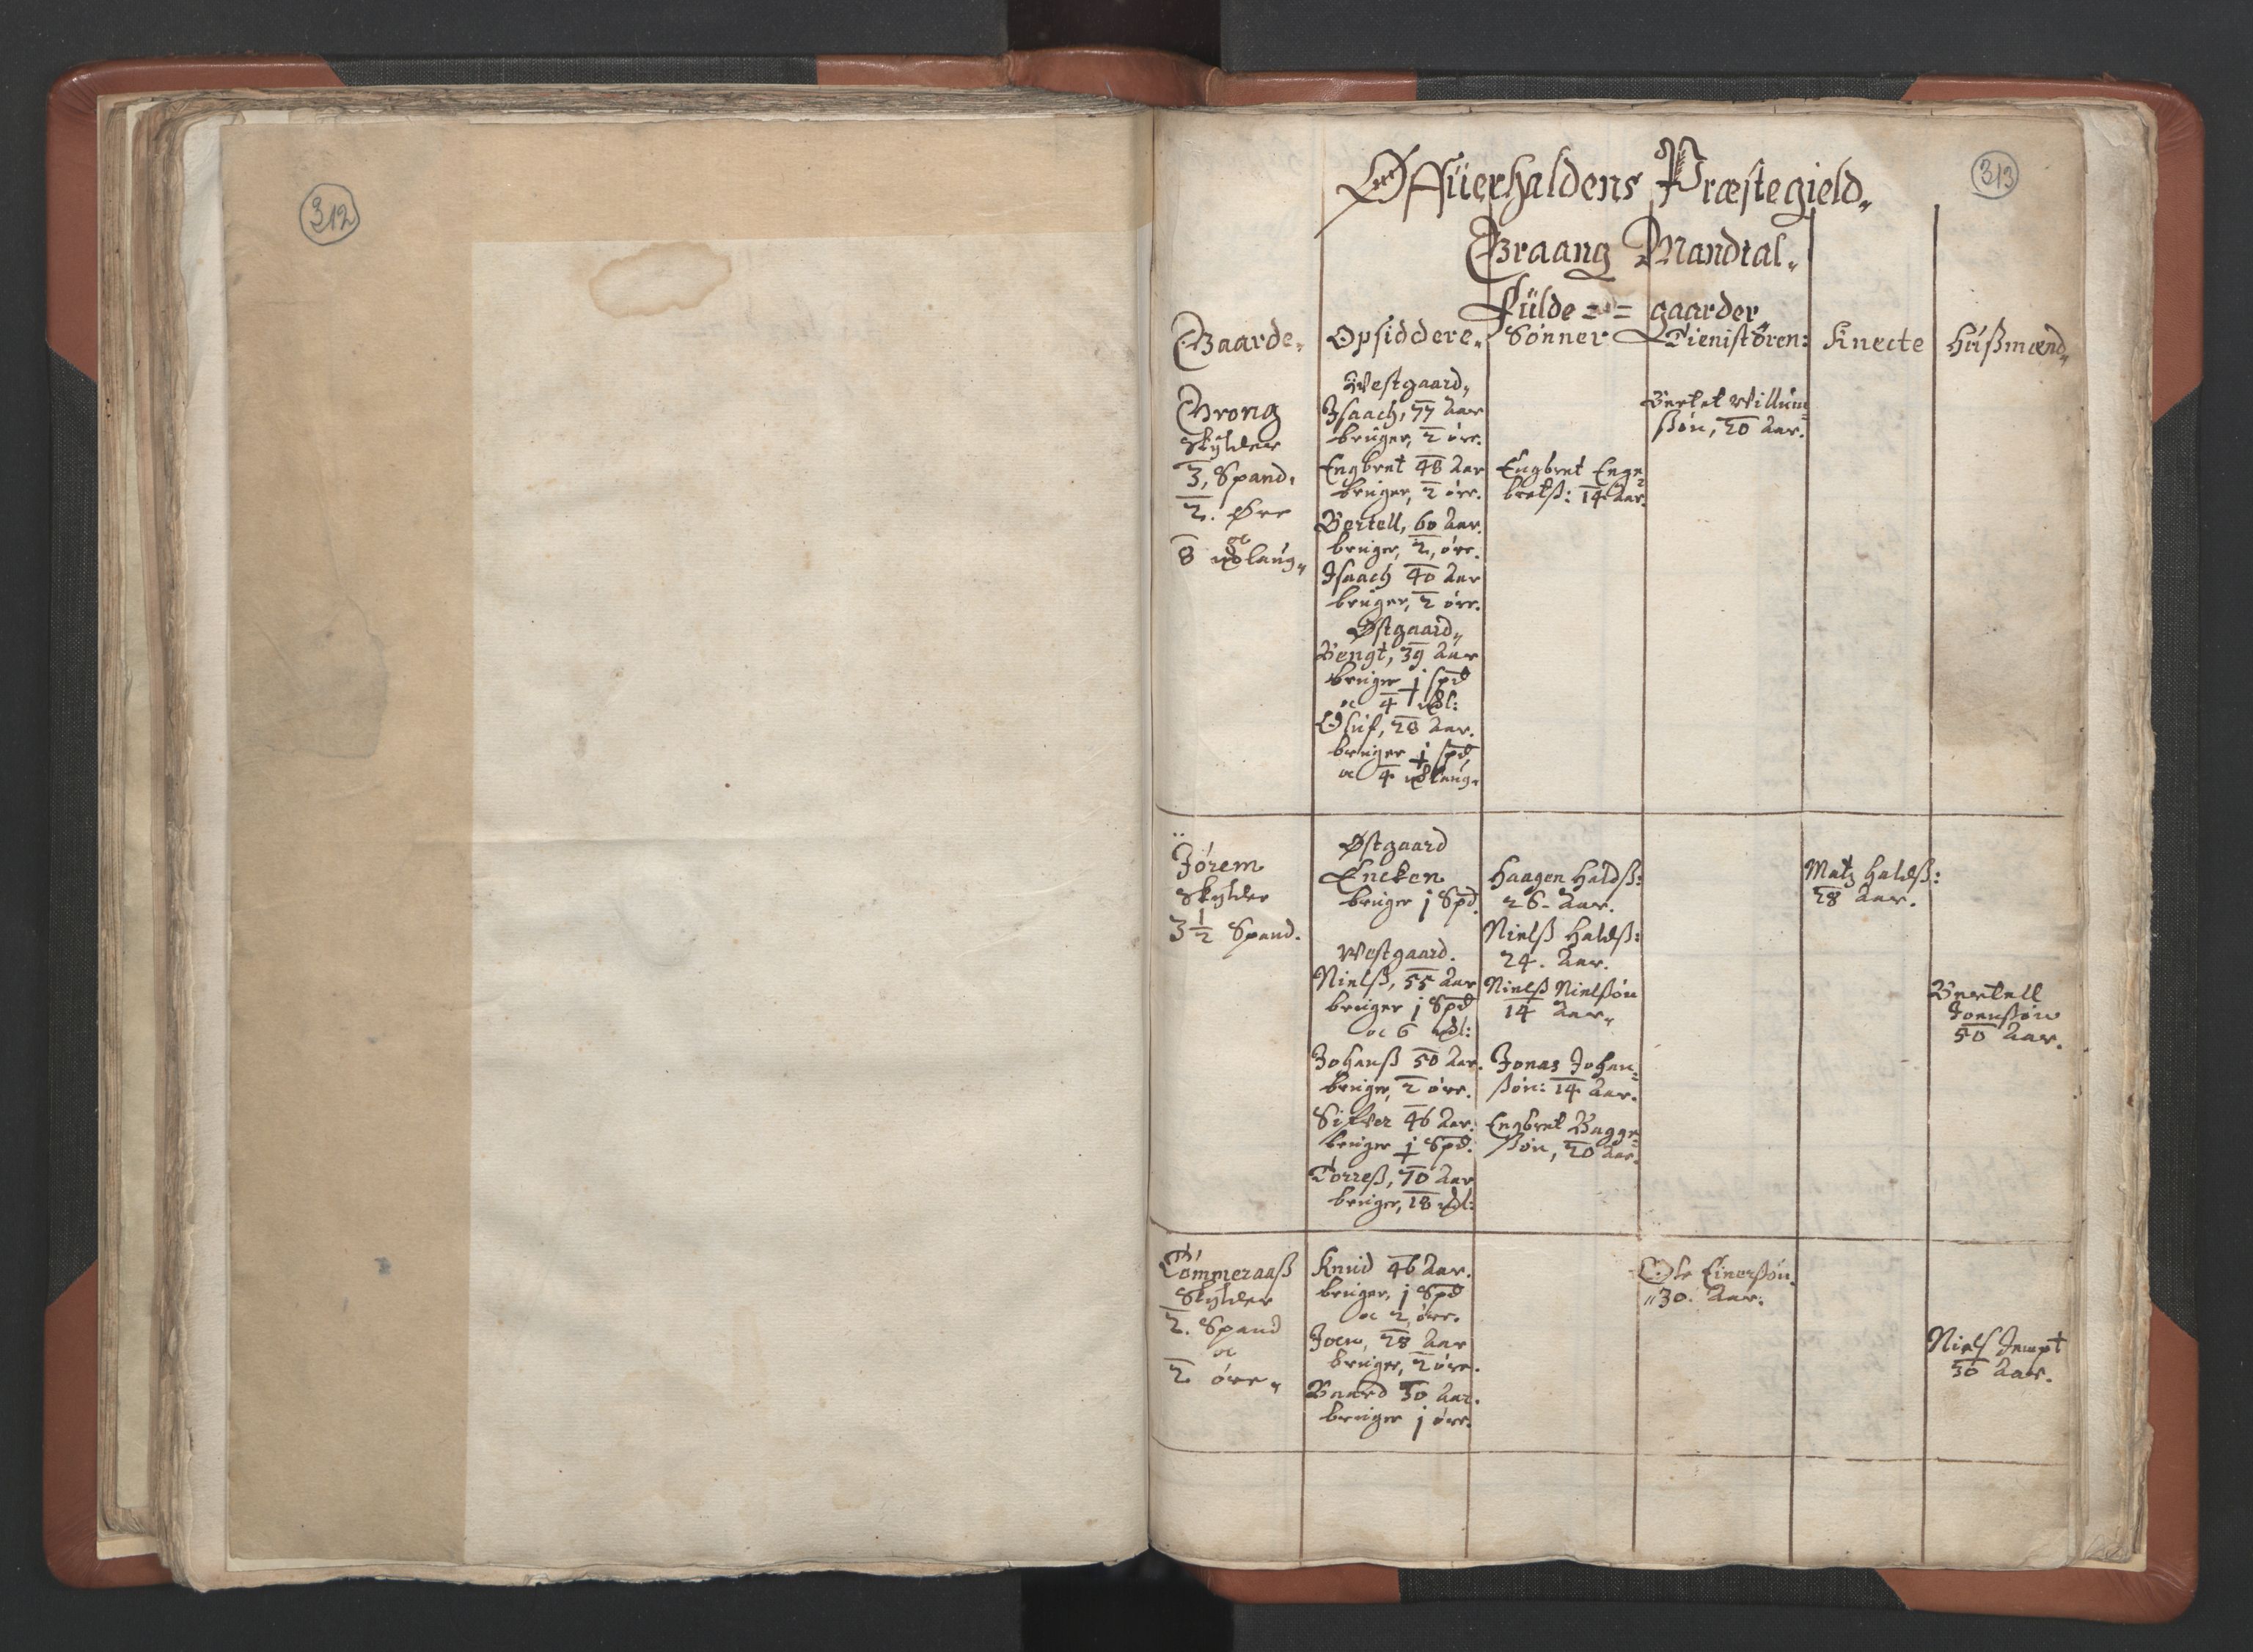 312
313
Offüerhaldens Præstegield„
Graang Mandtal„
Fülde == gaarder„
Gaarde„
Opsiddere„
Sønner
Tienistdren:
Knecte
Hüßmænd„
Grong
Skylder
3, Spand,
2. Øre
oc
8 mklaug„
Westgaard„
Isaach, 77 Aar
bruger, 2 øre.
Engbret 48 Aar
bruger, 2 øre.
Bertell, 60 Aar.
bruger, 2, øre.
Isaach 40 Aar
bruger, 2 øre.
Østgaard„
Bengt, 39 Aar
bruger j spd
oc 4 mkl:
Oluf, 28 Aar.
bruger j spd
oc 4 mklaug.
Engbret Enge=
bretß: 14 Aar.
Bertel Willum=
ßøn, 20 Aar.
Jørem
Skylder
3½ Spand.
Østgaard
Encken
bruger j Spd.
Westgaard.
Nielß, 55 Aar
bruger j Spd
oc 6 mkl:
Johanß 50 Aar.
bruger, 2 øre.
Sifver 46 Aar.
bruger j Spd.
Torreß, 70 Aar
bruger, 18 mkl:
Haagen Haldß:
26. Aar.
Nielß Haldß:
24. Aar.
Nielß Nielßøn
14 Aar„
Jonas Johan=
ßøn: 14 Aar.
Engbret Bagge=
ßøn, 20 Aar.
Matz Haldß:
28 Aar.
Bertell
Joenßøn
50 Aar.
Tømmeraaß
Skylder
2. Spand
oc
2 øre„
Knud 46 Aar.
bruger, j Spd
oc 2 øre.
Joen, 28 Aar
bruger, 2 øre.
Baard 30 Aar.
bruger j øre.
Ole Einerßøn.
30. Aar.
Niels Jempt
50 Aar.